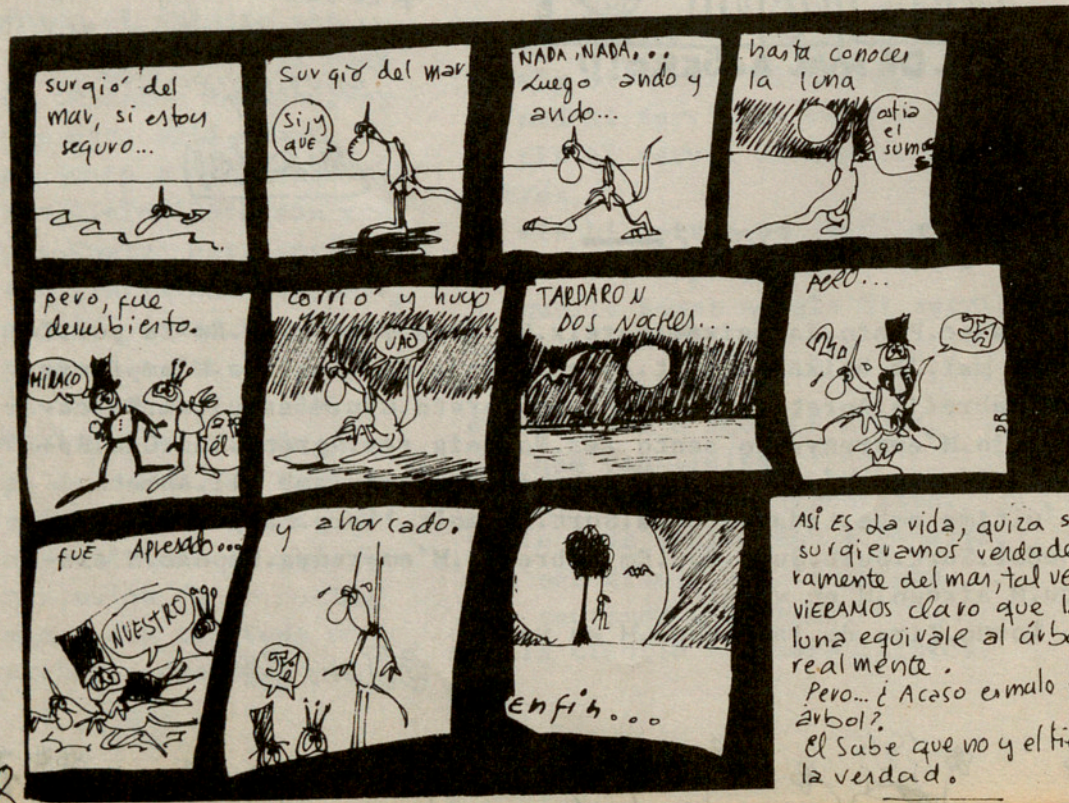 surgió del
mar, si estoy
seguro...
surgió del mar.
Si, y
que
NADA, NADA...
Luego ando y
ando...
hasta conocer
la luna
ostia
el
pero, fue
descubierto.
MIRALO
él
corrió y huyó
UAO
TARDARON
DOS NOCHES...
PERO...
JA
DR
fUE APRESADO...
NUESTRO
y ahorcado.
JA
Enfin...
ASÍ ES La vida, quiza s
surgieramos verdade
ramente del mar, tal ve
VIERAMOS claro que l
luna equivale al árbo
realmente.
Pero... ¿ Acaso es malo
árbol?.
él sabe que no y el ti
la verdad.